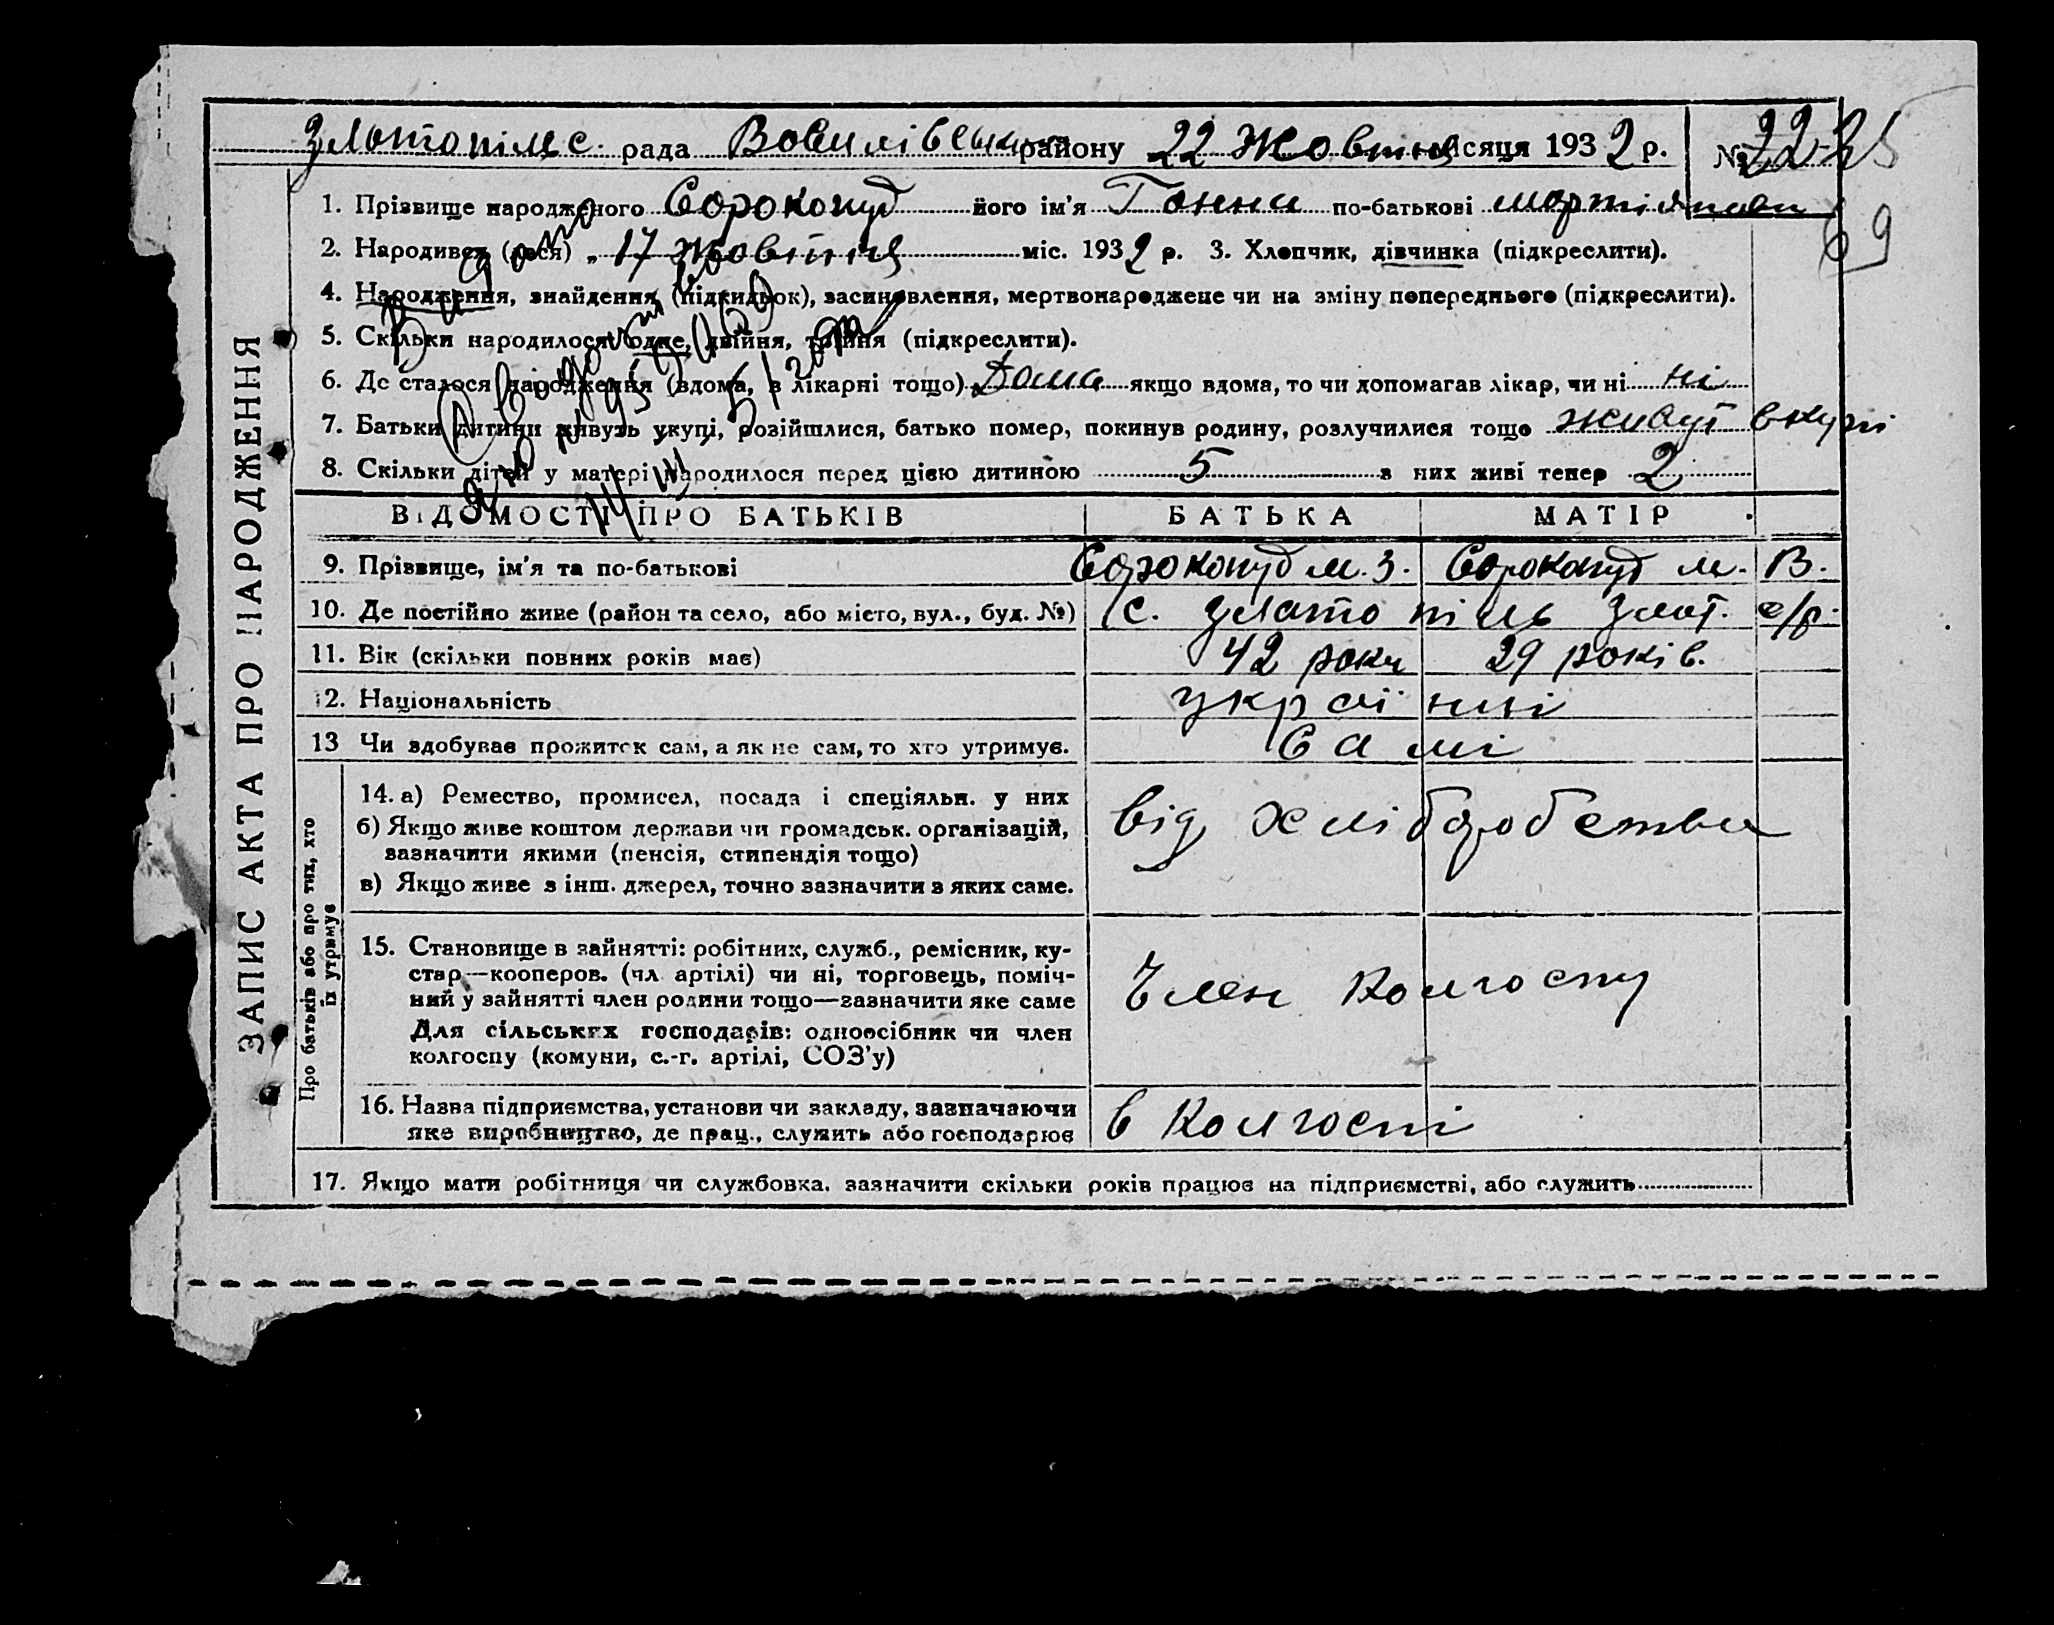 Злотопільс. рада Вовчилівськ району 22 Жовтня місяця 1932 р. № 22 25
69
ЗАПИС АКТА ПРО НАРОДЖЕННЯ
1. Прізвище народженого Сорокопуд його ім'я Ганна по-батькові
2. Народився (лася) „17 жовтня міс. 1932 р. 3. Хлопчик, дівчинка (підкреслити).
4. Народження, знайдення (підкидьок), засиновлення, мертвонароджене чи на зміну попереднього (підкреслити).
5. Скільки народилося: одне, двійня, трійня (підкреслити).
6. Де сталося народження (вдома, в лікарні тощо) Дома якщо вдома, то чи допомагав лікар, чи ні ні
7. Батьки дитини живуть укупі, розійшлися, батько помер, покинув родину, розлучилися тощо живуть вкупі
8. Скільки дітей у матері народилося перед цією дитиною 5 з них живі тепер 2
Видано
ВІДОМОСТІ ПРО БАТЬКІВ БАТЬКА МАТІР
9. Прізвище, ім'я та по-батькові Сорокопуд М. З. Сорокопуд М. В.
10. Де постійно живе (район та село, або місто, вул., буд. №) с. Злотопіль Злот. с/р.
11. Вік (скільки повних років має) 42 роки 29 років.
12. Національність українці
13 Чи здобуває прожиток сам, а як не сам, то хто утримує. Самі
Про батьків або про тих, хто
їх утримує
14. а) Ремество, промисел, посада і спеціяльн. у них
б) Якщо живе коштом держави чи громадськ. організацій,
зазначити якими (пенсія, стипендія тощо)
в) Якщо живе з інш. джерел, точно зазначити з яких саме.
від хліборобства
15. Становище в зайнятті: робітник, служб., ремісник, ку-
стар—кооперов. (чл артілі) чи ні, торговець, поміч-
ний у зайнятті член родини тощо—зазначити яке саме
Для сільських господарів: одноосібник чи член
колгоспу (комуни, с.-г. артілі, СОЗ'у)
Член Колгоспу
16. Назва підприємства, установи чи закладу, зазначаючи
яке виробництво, де прац., служить або господарює
в Колгоспі
17. Якщо мати робітниця чи службовка, зазначити скільки років працює на підприємстві, або служить